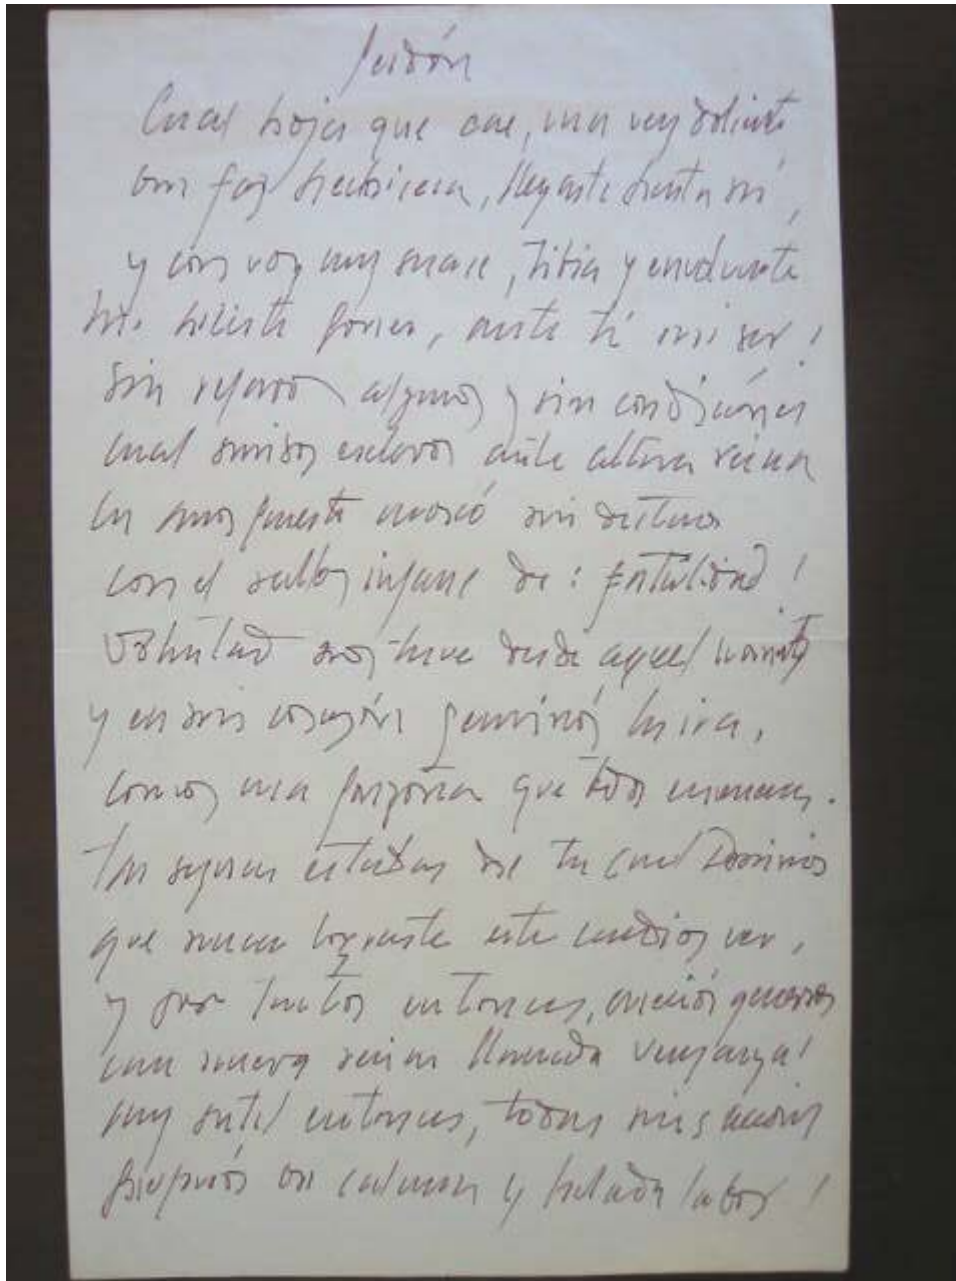 Perdón
Cual hoja que cae, una vez doliente
con faz hechicera, llegaste hasta mí,
y con voz muy suave, tibia y envolvente
me hiciste poner, ante ti mi ser!
Sin reparos algunos y sin condiciones
cual sumisos esclavos ante altiva reina
la muerte sin
con el sello infame de: fatalidad!
Voluntad no tuve desde aquel momento
y en mi corazón germinó la ira,
como una ponzoña que todo envenena.
Tan segura estabas de tu cruel dominio
que nunca lograste este odio ver,
y por tanto entonces,
una nueva reina llamada venganza!
muy sutil entonces, todas mis
con calma y helada labor!